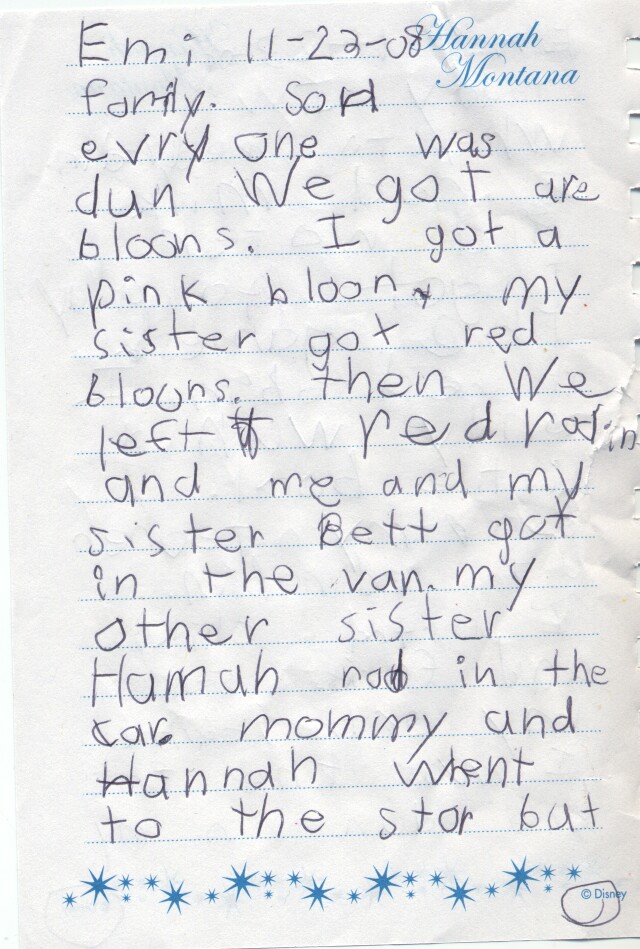 Emi 11-23-08 Hannah
Montana
family. So
evry one was
dun We got are
bloons. I got a
pink bloon my
sister got red
bloons. then We
left red robin
and me and my
sister Bett got
in the van. my
other sister
Hannah rod in the
car. mommy and
Hannah Went
to the stor but
© Disney